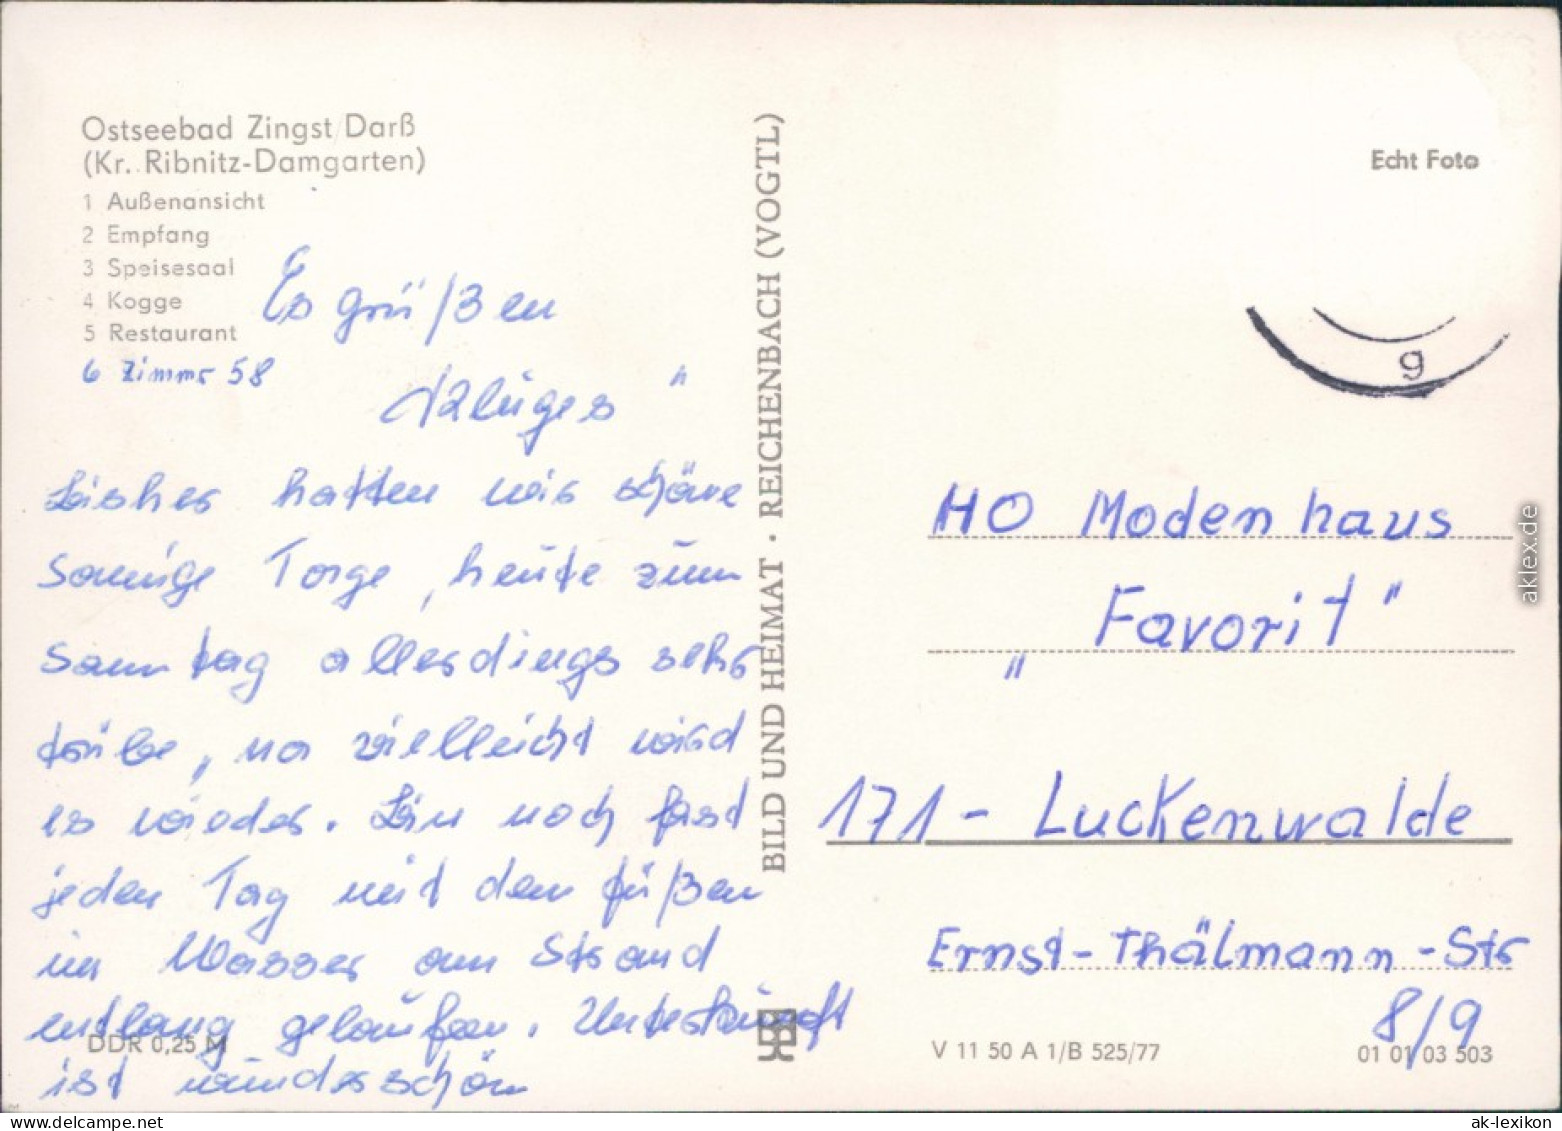 Ostseebad Zingst/Darß
(Kr. Ribnitz-Damgarten)
1 Außenansicht
2 Empfang
3 Speisesaal
4 Kogge
5 Restaurant
6 Zimmr 58
Es grüßen
"
Bisher hatten wir schöne
sonnige Tage, heute zum
Sonntag allerdings sehr
trübe, na vielleicht wird
es wieder. Bin noch fast
jeden Tag mit den Füßen
im Wasser am Strand
entlang gelaufen. Unterkunft
ist wunderschön
DDR 0,25 M
BILD UND HEIMAT · REICHENBACH (VOGTL)
Echt Foto
g
HO Modenhaus
"Favorit"
171 - Luckenwalde
Ernst-Thälmann-Str
8/9
V 11 50 A 1/B 525/77
01 01 03 503
aklex.de
ak-lexikon.com